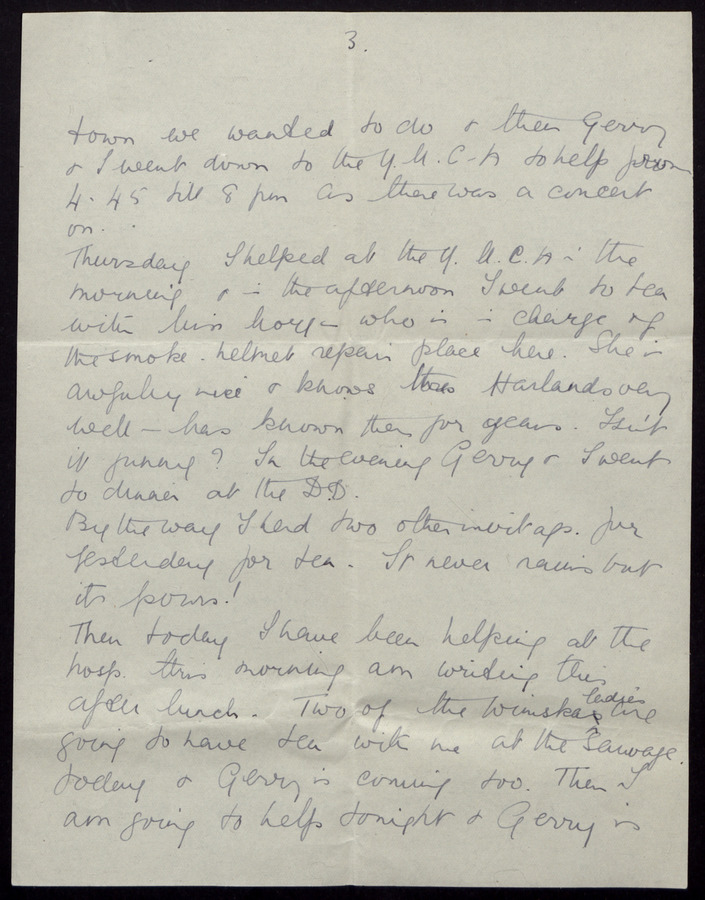 3.
town we wanted to do & then Gerry
& I went down to the Y.M.C-A to help from
4.45 till 8 pm as there was a concert
on.
Thursday I helped at the Y.M.C.A i the
morning & - i the afternoon I went to tea
with Miss - who is i charge of
the smoke-helmet repair place here. She is
awfully nice & knows the Harlands very
well – has known them for years. Isn't
it funny? In the evening Gerry & I went
to dinner at the D.D.
By the way I had two other invitaps. for
yesterday for tea - It never rains but
it pours!
Then today I have been helping at the
hosp. this morning am writing this
after lunch. Two of the ladies are
going to have tea with me at the Sauvage
today & Gerry is coming too. Then I
am going to help tonight & Gerry is